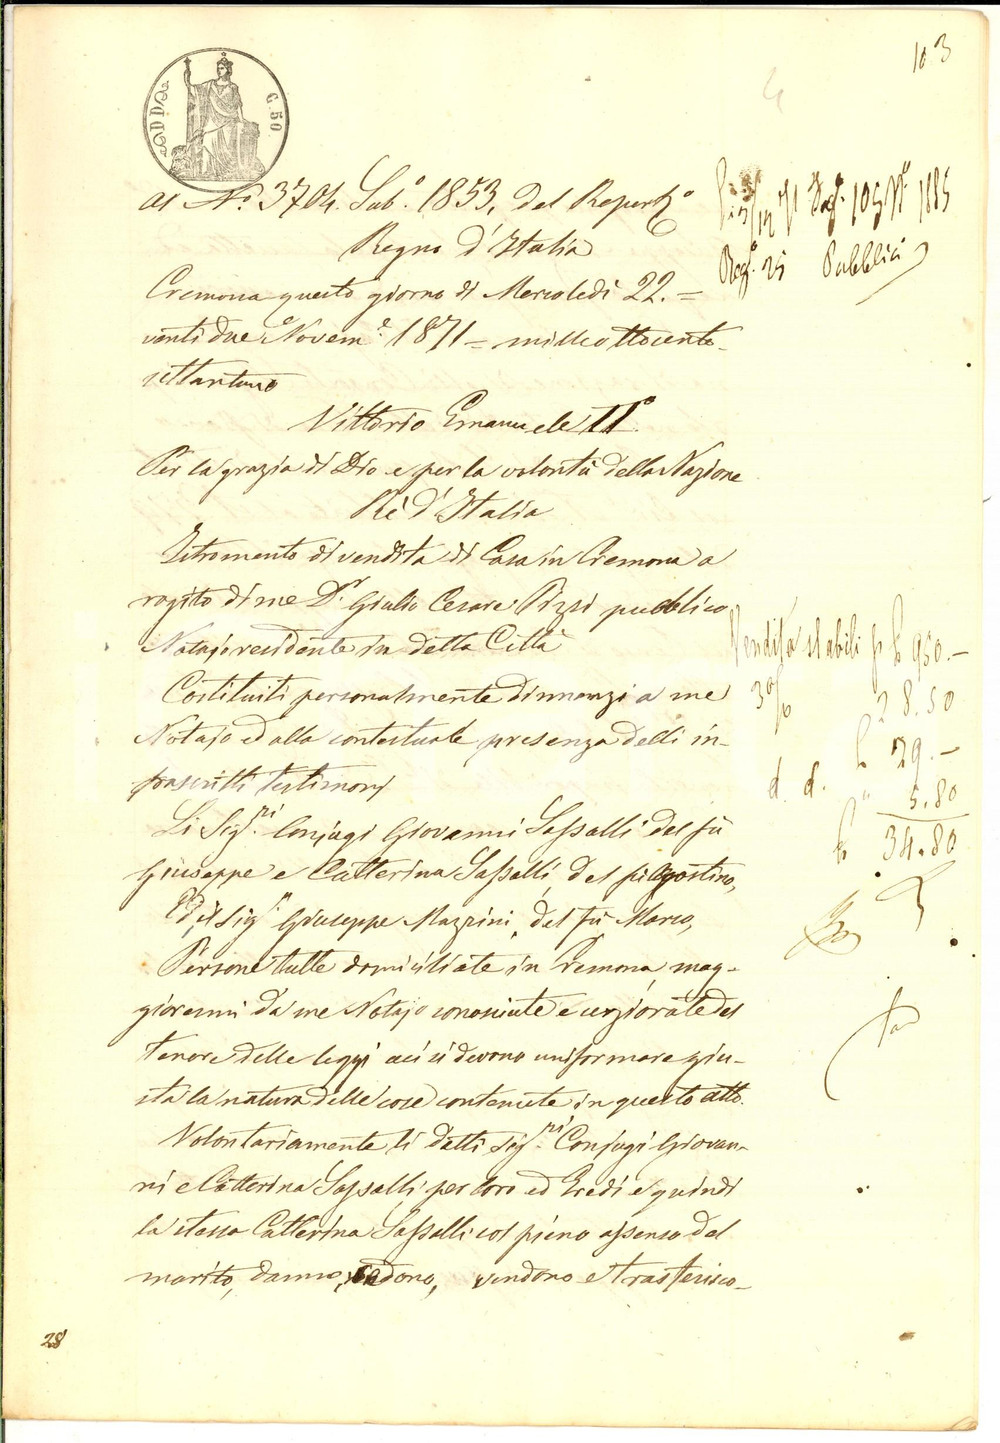 103
C. 50
al N.° 3704. Sub.° 1853, del Repert.°
Regno d'Italia
Cremona questo giorno di Mercoledì 22.=
venti due Novem.e 1871= mille ottocento
settantuno
Vittorio Emanuele II°
Per la grazia di Dio e per la volontà della Nazione
Rè d'Italia
Istromento di vendita di Casa in Cremona a
rogito di me D.r Giulio Cesare Pizzi pubblico
Notajo residente in detta Città
Costituiti personalmente dinnanzi a me
Notajo ed alla contestuale presenza delli in-
frascritti testimonj
Li Sig.ri Conjugi Giovanni Sassalli del fù
Giuseppe e Catterina Sassalli, del fù Agostino,
Ed il Sig.r Giuseppe Mazzini, del fù Marco,
Persone tutte domiciliate in Cremona mag-
giorenni da me Notajo conosciute e cerziorate del
tenore delle leggi a cui si devono uniformare giu-
sta la natura delle cose contenute in questo atto.
Volontariamente li detti Sig.ri Conjugi Giovan-
ni e Catterina Sassalli, per loro ed Eredi e quindi
la stessa Catterina Sassalli col pieno assenso del
marito, danno, cedono, vendono e trasferisco-
N° 1885
Reg.° 25 Pubblici
Vendita stabili p £ 950.-
3% 28.50
£ 29.-
d. d. " 5.80
£ 34.80
28